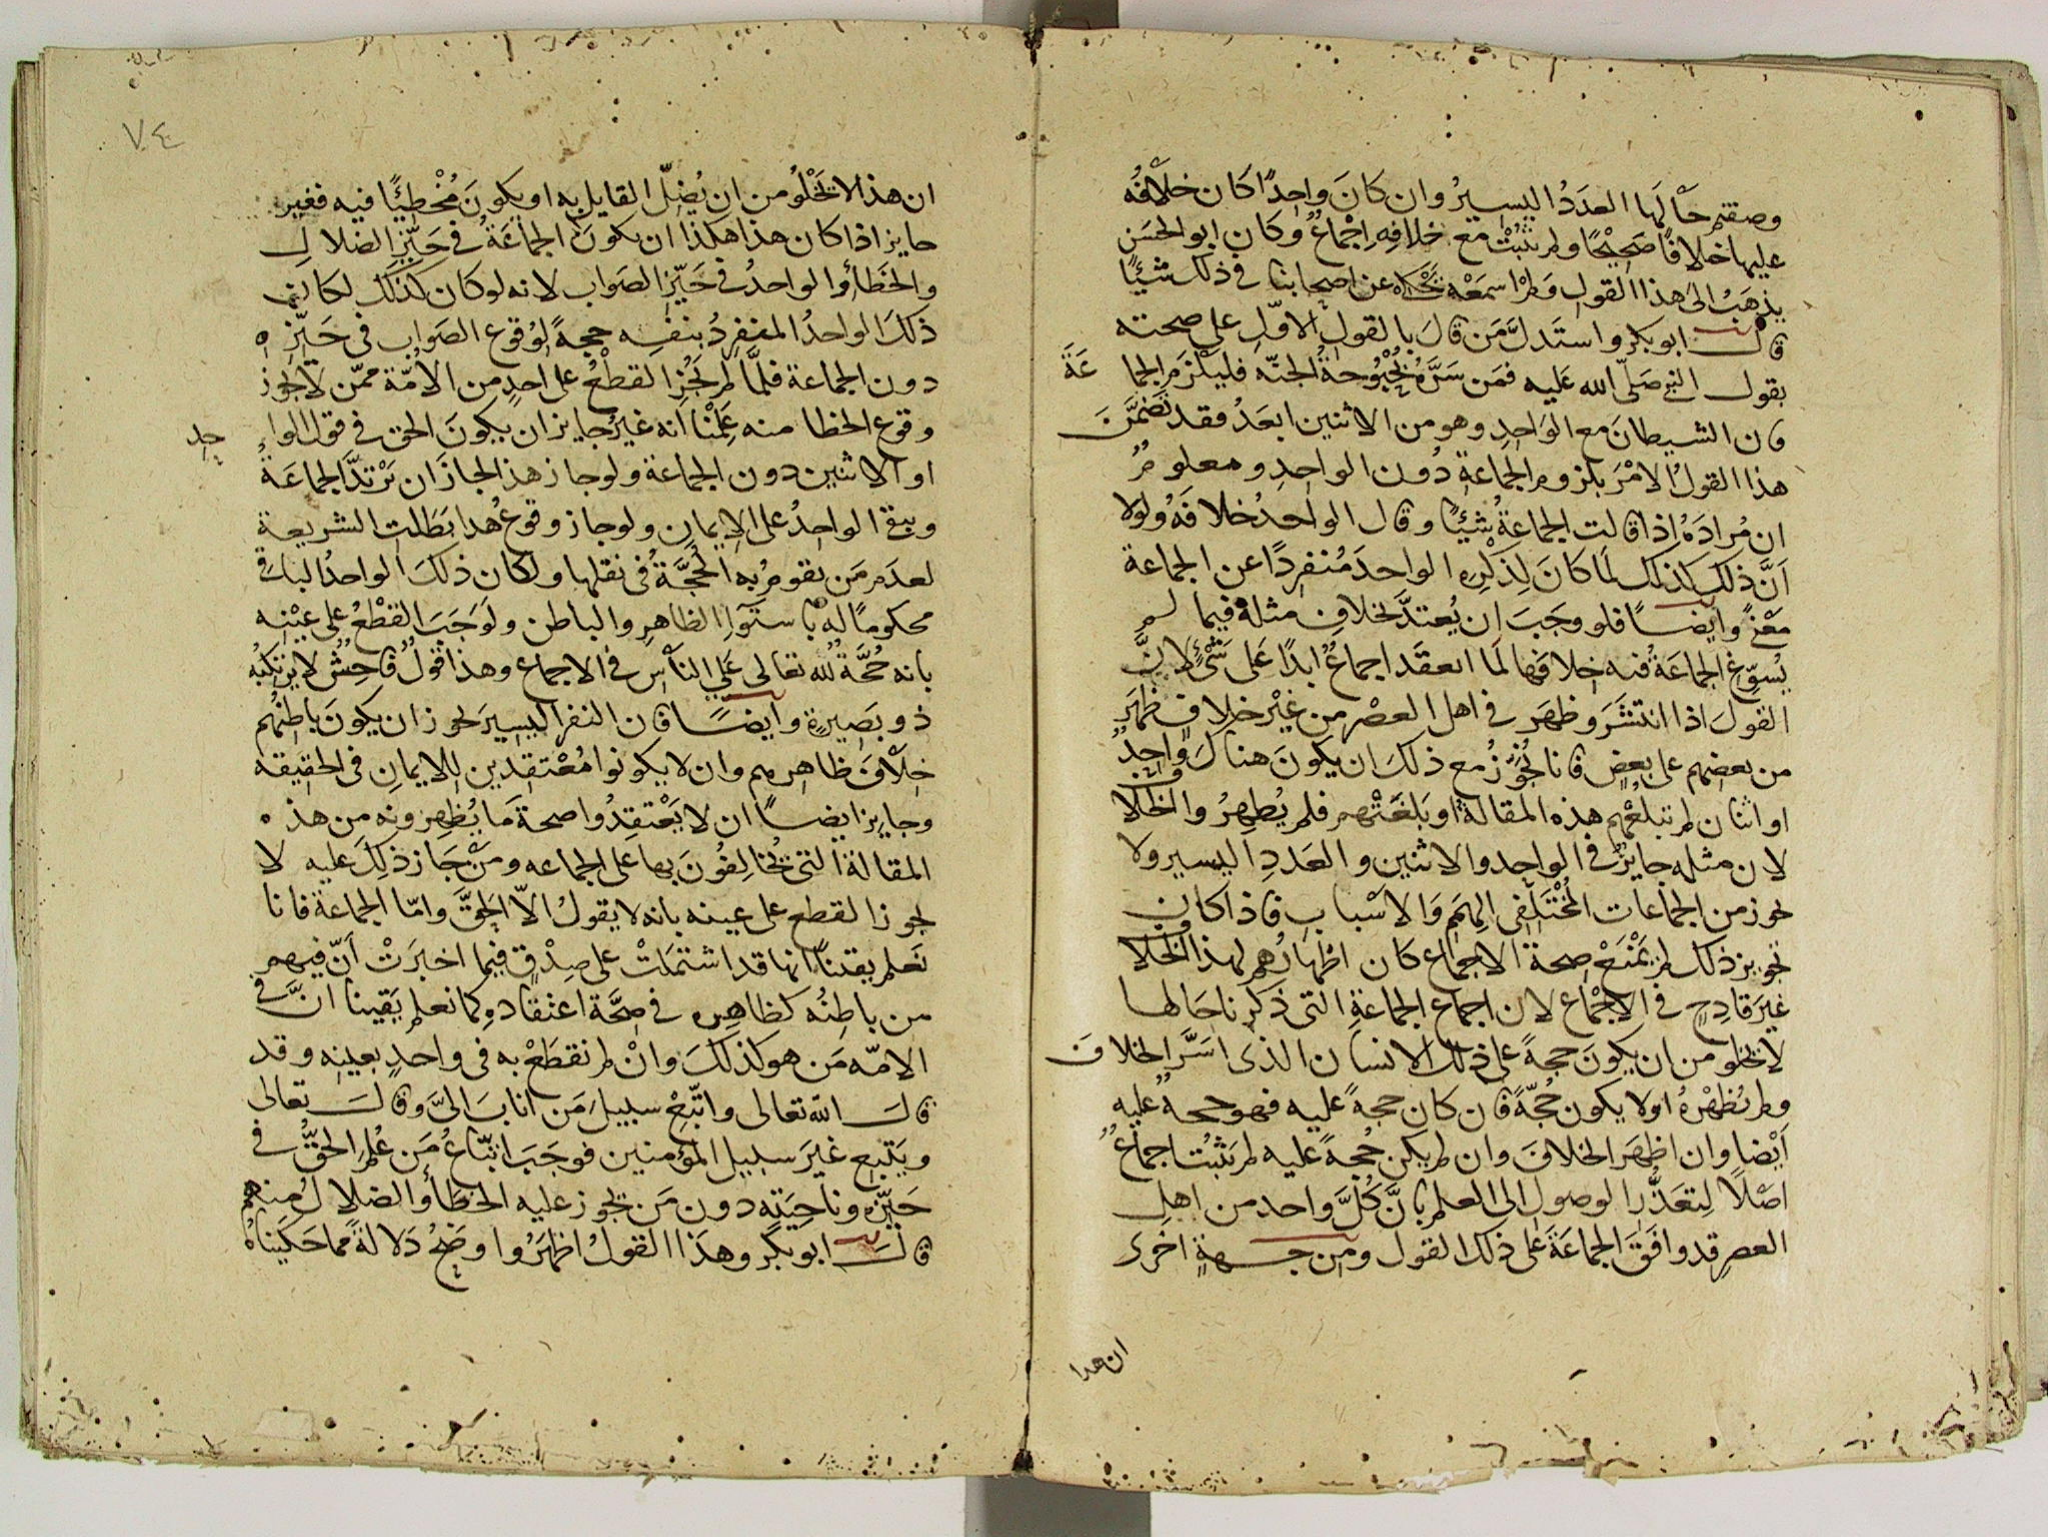 وصفتم حَالَهَا العدَدُ اليسيرُ وان كانَ واحدًا كان خلافُه
عليها خلافًا صَحِيْحًا ولم يثبُتْ مع خلافِهِ اِجْماعٌ وكان ابو الحسَن
يذهَبُ الىَ هذا القول ولم اسمَعْهُ يَحْكِه عن اصحابنا في ذلك شيئًا
قال ابو بكر واستَدلَّ مَن قالَ بالقول الاوّلِ على صحته
بقول النبي صَلّى الله عَليه فمَن سَرَّهُ بُحْبُوْحةُ الجنّه فليَلْزَمِ الجماعَةَ
فان الشيطانَ مع الوَاحدِ وهو من الاثنين ابعَدُ فقد تَضَمَّنَ
هذا القولُ الامْرَ بلزوم الجماعةِ دُون الواحدِ ومعلومٌ
ان مُرادَهُ اذا قالت الجماعةُ شيئًا وقال الواحدُ خلافَهُ ولولا
اَنَّ ذلك كذلك لَما كانَ لِذكْرِه الواحدَ مُنفردًا عن الجماعة
مَعْنًى وايضًا فلو وجَبَ ان يُعتدَّ بخلافِ مثلهِ فيما لم
يُسوِّغ الجماعَةُ فيه خلافَها لَما انعقَد اجماعٌ ابدًا عَلى شَيْءٍ لانَّ
القولَ اذا انتشَرَ وظهَر في اهل العصْرِ من غيْر خلافٍ ظهَر
من بعضهم على بعضٍ فانا نُجوِّزُ مع ذلكَ ان يكونَ هناكَ واحدٌ
او اثنان لم تبلغْهُم هذه المقالةُ او بَلغَتْهم فلم يُظهِرُوا الخلاف
لان مثله جايزٌ في الواحد والاثنين والعَددِ اليسيرِ ولا
يجوز من الجماعات المُخْتلِفى الهِمَم وَالاسْباب فاذا كان
تجويز ذلك لم يَمْنعْ صحةَ الاجماع كان اظهارُهم لهذا الخلاف
غيرَ قادِحٍ في الاجْماع لان اجماع الجماعةِ التي ذكرنا حَالها
لا يخلو من ان يكونَ حجةً على ذلك الانسان الذي اسَرَّ الخلافَ
ولم يُظهْرهُ اولا يكون حُجّةً فان كان حجةً عليه فهو حجةٌ عليه
اَيْضا وان اظهَر الخلافَ وان لم يكن حُجةً عليه لم يَثبُت اجماعٌ
اصْلًا لِتعَذُّرِ الوصول الى العلم بانَّ كُلَّ واحد من اهل
العصرِ قد وافَقَ الجماعَةَ على ذلك القول ومن جهةٍ اخرى
ان هذا
٧٤
ان هذا لا يَخْلُو من ان يُضِلّ القايل به او يكونَ مُخْطِيًا فيه فغير
جايز اذا كان هذا هكذا ان يكونَ الجماعَةُ في حَيّزِ الضلال
والخَطأ والواحدُ في حَيّزِ الصَواب لانه لو كان كذلك لكان
ذلكَ الواحدُ المنفردُ بنفسِه حجةً لوُقوع الصواب في حَيّزه
دون الجماعة فلمَّا لم يَجُزِ القطعُ على احدٍ من الاُمّة ممّن لا يَجوز
وقوع الخطا منه عَلِمْنا انه غيرُ جايز ان يكونَ الحق في قول الواحد
او الاثنين دون الجماعة ولو جاز هذا لجازَ ان تَرْتدَّ الجماعَةُ
ويبقى الواحدُ على الايمانِ ولو جاز وقوعُ هذا بَطَلت الشريعة
لعدَم مَن تقومُ به الحُجَّةُ في نقلها ولكان ذلكَ الواحدُ الباقي
محكومًا له باستوَاءِ الظاهرِ والباطن ولَوَجَبَ القطْعُ على عيْنِه
بانه حُجَّةٌ لله تعالى عَلى النّاسِ في الاجماع وهذا قولٌ فاحِشٌ لا يرتكبُه
ذو بَصِيرةٍ وايضًا فان النفر اليسيرَ يجوز ان يكونَ باطنُهم
خلافَ ظاهرِهم وان لا يكونوا مُعْتقدِين للايمانِ في الحقيقه
وجايز ايضًا ان لا يَعْتقِدُوا صحةَ مَا يُظهرونه من هذه
المقالة التي يُخالِفُونَ بها على الجماعه ومَنْ جَاز ذلكَ عليه لا
يجوز القطع على عينه بانه لا يقولُ الاّ الحقَّ وامّا الجماعةُ فانا
نَعلم يقينًا انها قد اشتملَتْ على صِدْقٍ فيما اخبرَتْ اَنّ فيهم
من باطِنُه كظاهرِه في صحَّة اعتقادِه كما نعلم يَقينا انَّ في
الامّه مَن هو كذلكَ وانْ لم نقطَعْ به في واحدٍ بعينه وقد
قالَ الله تعالى واتّبِعْ سبيلَ مَن انابَ اليَّ وقالَ تعالى
ويَتّبع غيرَ سبيل المؤمنين فوجَبَ اتّباعُ مَن عُلِمَ الحقُّ في
حَيّزِه وناحِيَتِه دون مَن يجوز عليه الخطأ والضلالُ منهم
قالَ ابو بكر وهذا القولُ اظهَرُ واوضَحُ دَلالةً مما حَكيناهُ